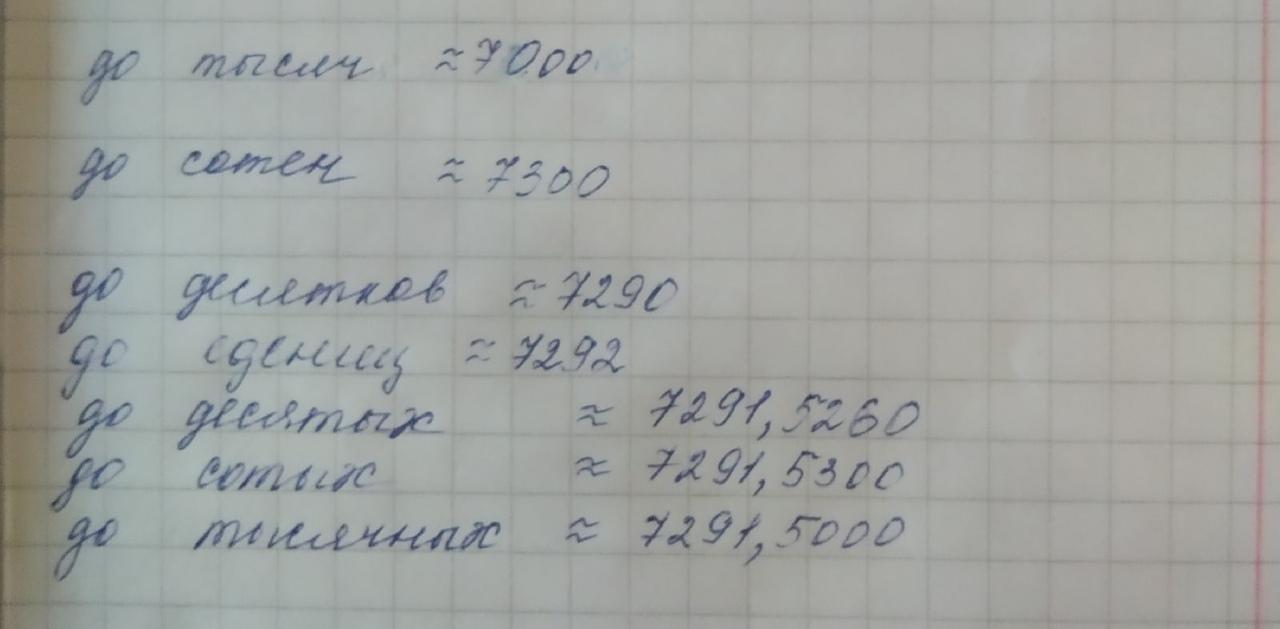 до тысяч ≈7000
до сотен ≈ 7300
до десятков ≈ 7290
до едениц ≈ 7292
до десятых ≈ 7291,5260
до сотых ≈ 7291,5300
до тысячных ≈ 7291,5000